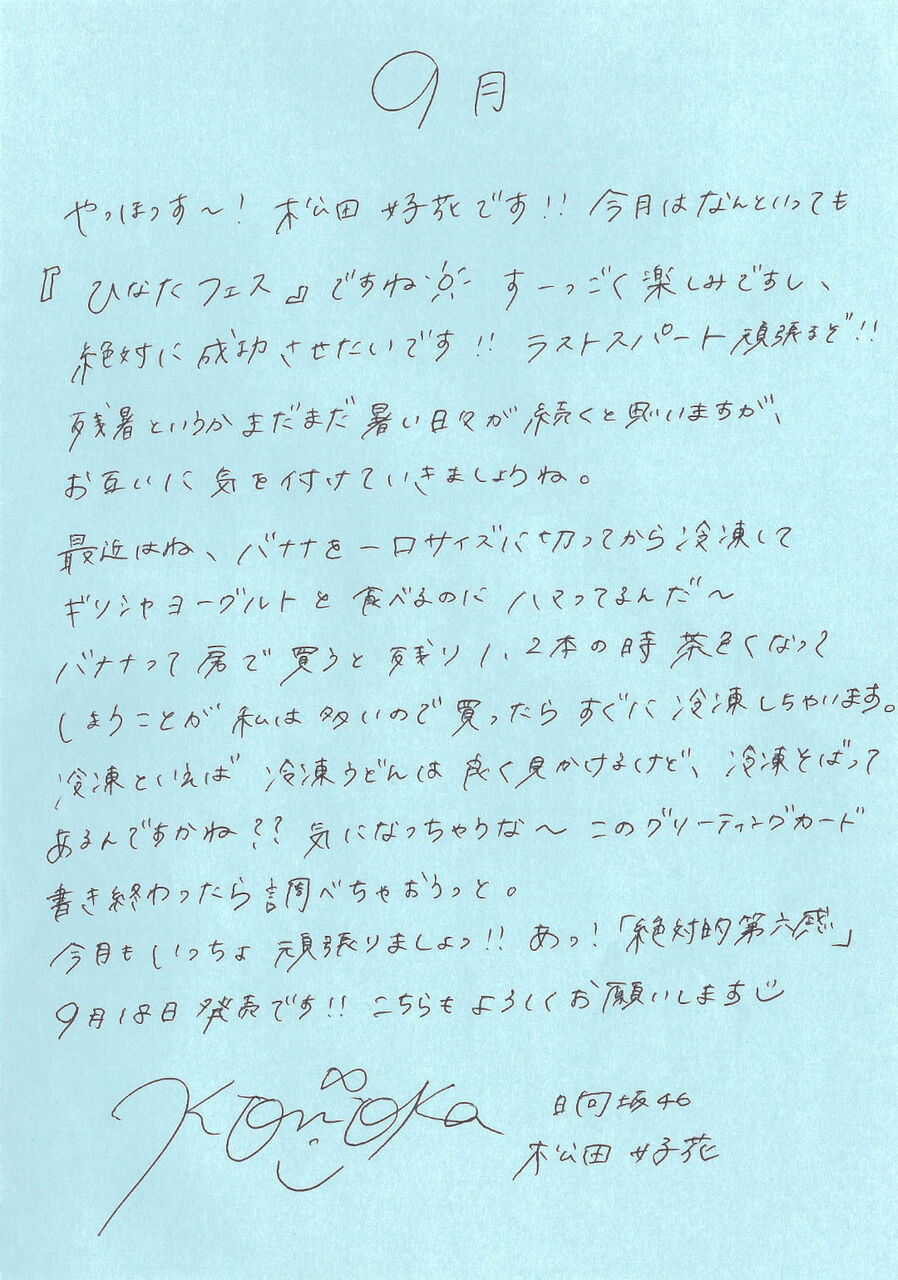 9月
やっほっす〜! 松田好花です!! 今月はなんといっても
『ひなたフェス』ですね すーっごく楽しみですし、
絶対に成功させたいです!! ラストスパート頑張るぞ!!
残暑というかまだまだ暑い日々が続くと思いますが、
お互いに気を付けていきましょうね。
最近はね、バナナを一口サイズに切ってから冷凍して
ギリシャヨーグルトと食べるのにハマってるんだ〜
バナナって房で買うと残り1、2本の時茶色くなって
しまうことが私は多いので買ったらすぐに冷凍しちゃいます。
冷凍といえば冷凍うどんは良く見かけるけど、冷凍そばって
あるんですかね?? 気になっちゃうな〜 このグリーティングカード
書き終わったら調べちゃおうっと。
今月もいっちょ頑張りましょっ!! あっ!「絶対的第六感」
9月18日発売です!! こちらもよろしくお願いします
Konoka
日向坂46
松田好花